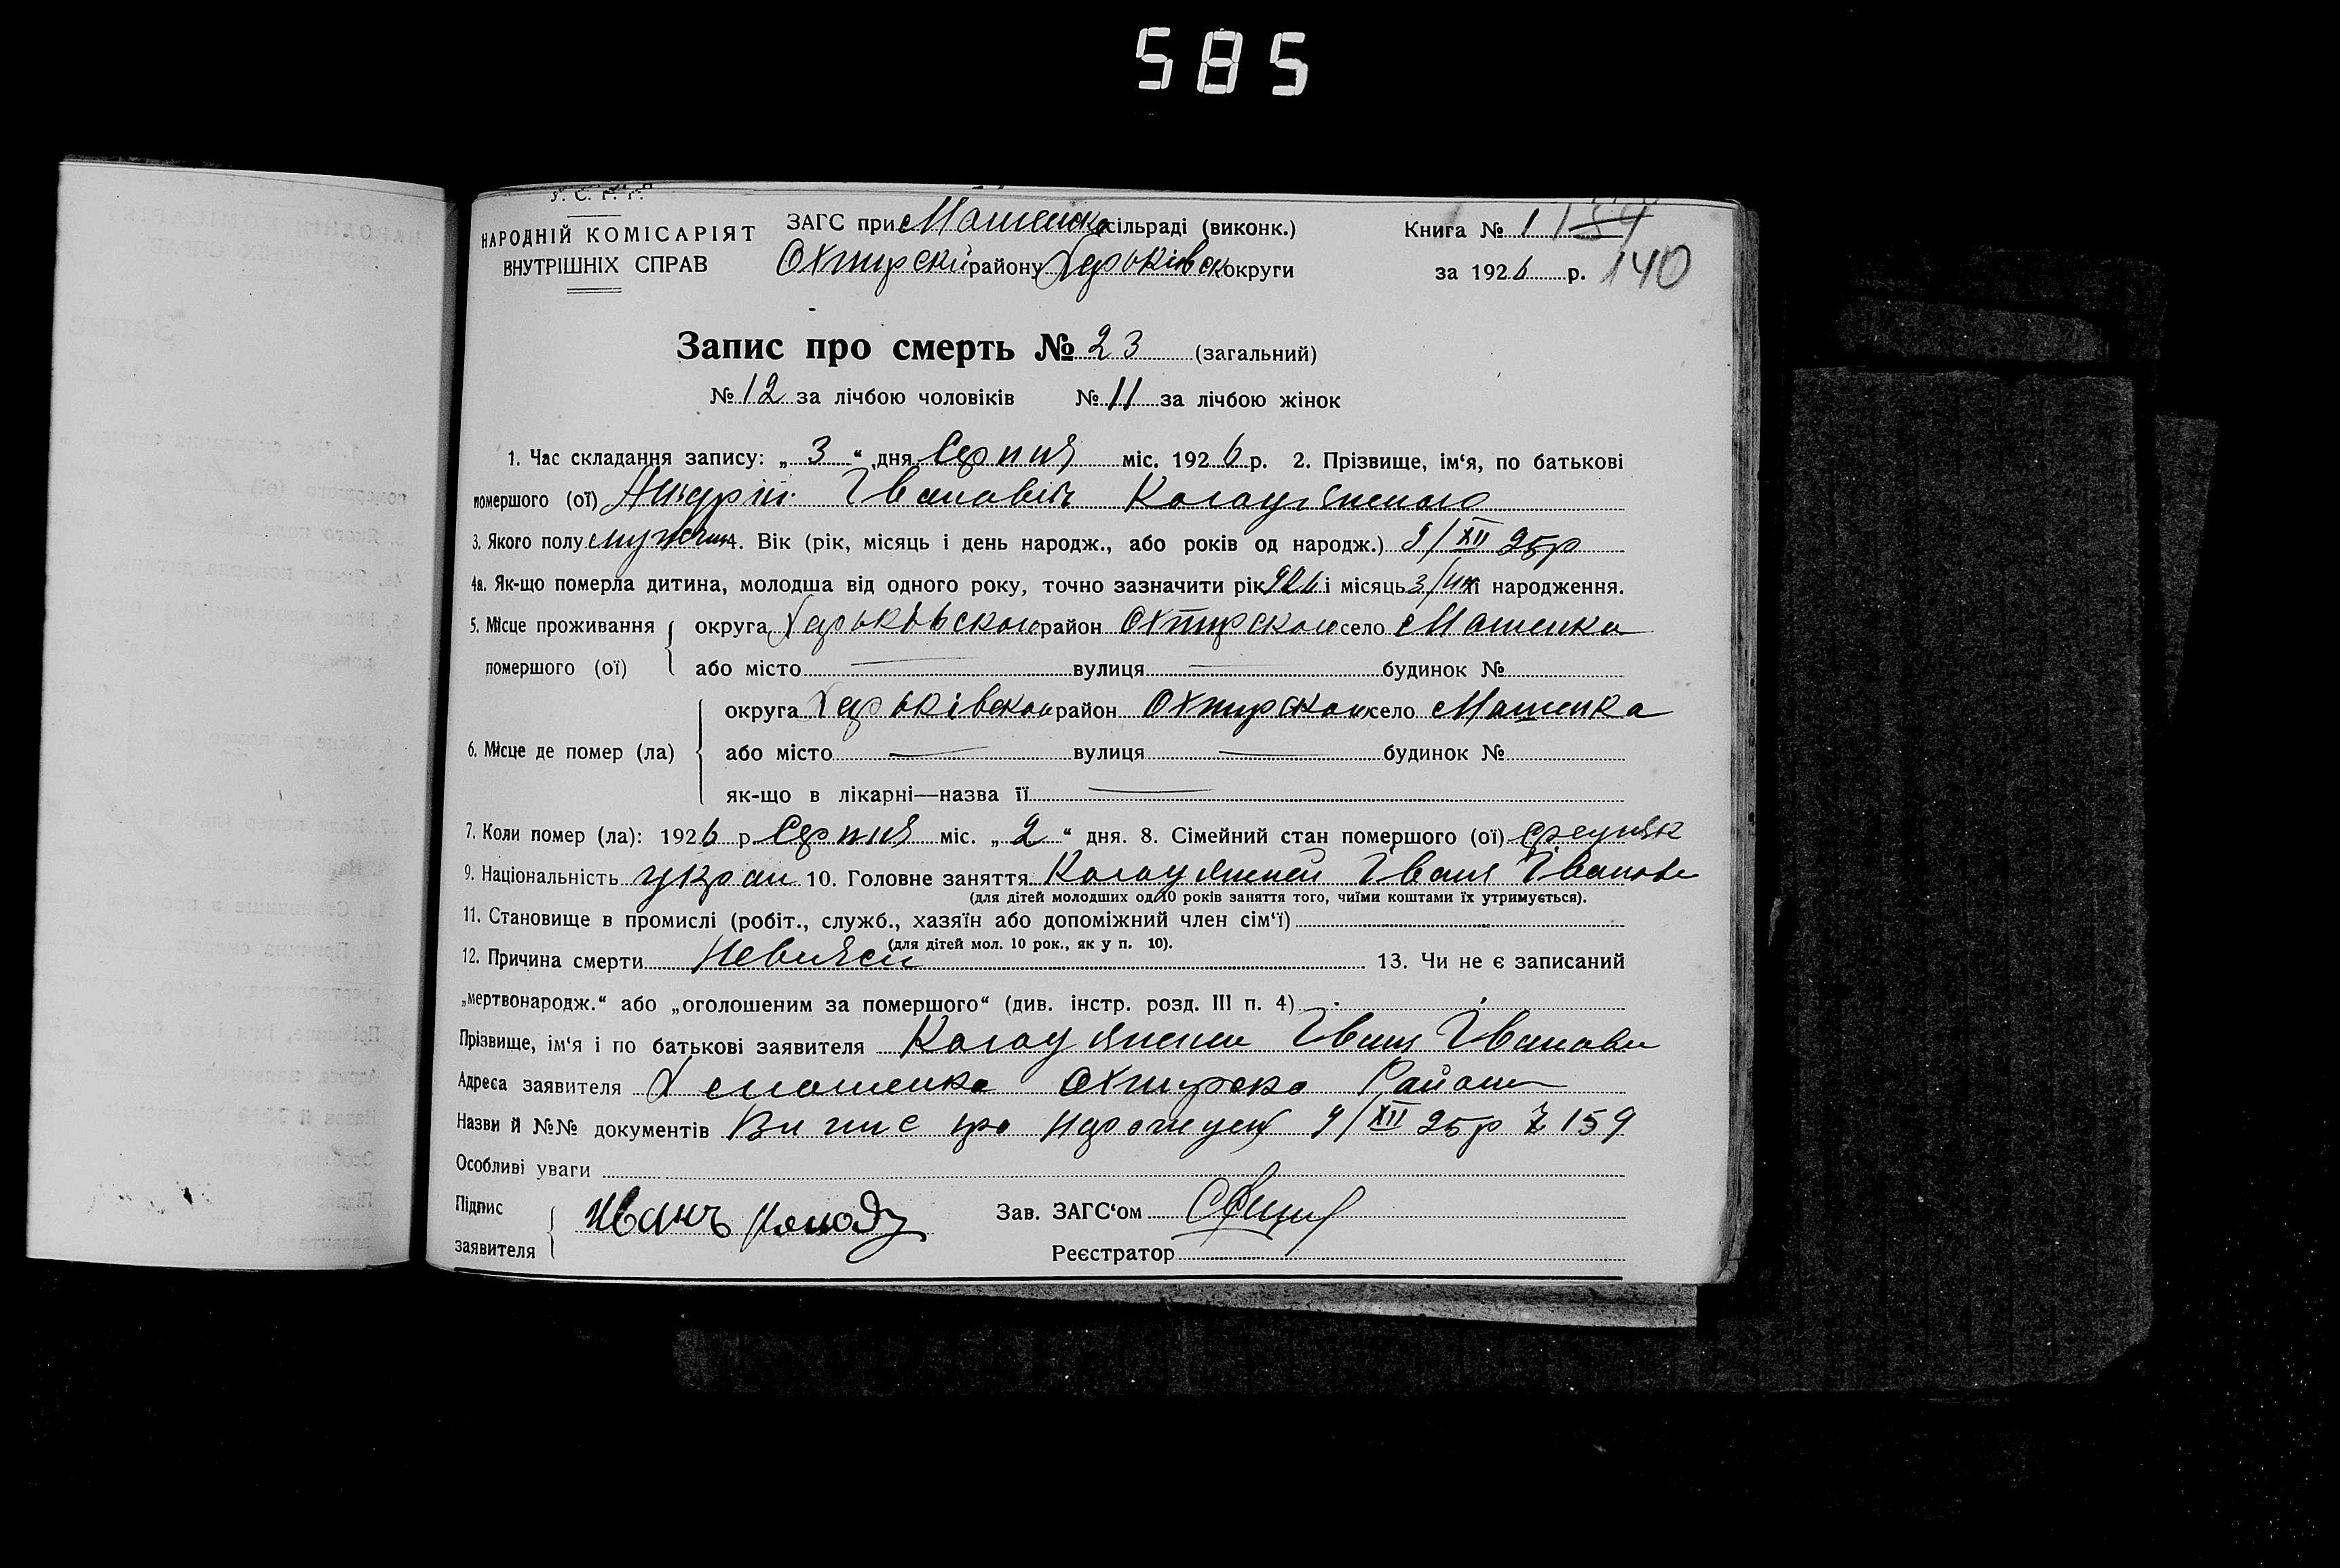 585
У. С. Р. Р.
НАРОДНІЙ КОМІСАРІЯТ
ВНУТРІШНІХ СПРАВ
ЗАГС при Машенко сільраді (виконк.)
Охтирскі району Харьківск округи
Книга № 1
за 1926 р. 140
Запис про смерть № 23 (загальний)
№ 12 за лічбою чоловіків № 11 за лічбою жінок
1. Час складання запису: „ 3 “ дня Серпня міс. 1926 р. 2. Прізвище, ім‘я, по батькові
помершого (ої) Андрій Івановіч
3. Якого полу мужчин. Вік (рік, місяць і день народж., або років од народж.) 9/XII 25р
4а. Як-що померла дитина, молодша від одного року, точно зазначити рік 926 і місяць 3/ народження.
5. Місце проживання помершого (ої) округа Харьківского район Охтирского село Машенка
або місто вулиця будинок №
6. Місце де помер (ла) округа Харьківскои район Охтирскои село Машенка
або місто вулиця будинок №
як-що в лікарні—назва її
7. Коли помер (ла): 1926 р. Серпня міс. „ 2 “ дня. 8. Сімейний стан помершого (ої)
9. Національність украи 10. Головне заняття Іван Іванови
(для дітей молодших од 10 років заняття того, чиїми коштами їх утримується).
11. Становище в промислі (робіт., служб., хазяїн або допоміжний член сім‘ї)
(для дітей мол. 10 рок., як у п. 10).
12. Причина смерти 13. Чи не є записаний
„мертвонародж.“ або „оголошеним за помершого“ (див. інстр. розд. III п. 4)
Прізвище, ім‘я і по батькові заявителя Іван Іванови
Адреса заявителя Х Машенка Охтирско Район
Назви й №№ документів Випис про 9/XII 25р № 159
Особливі уваги
Підпис заявителя Иванъ
Зав. ЗАГС‘ом
Реєстратор